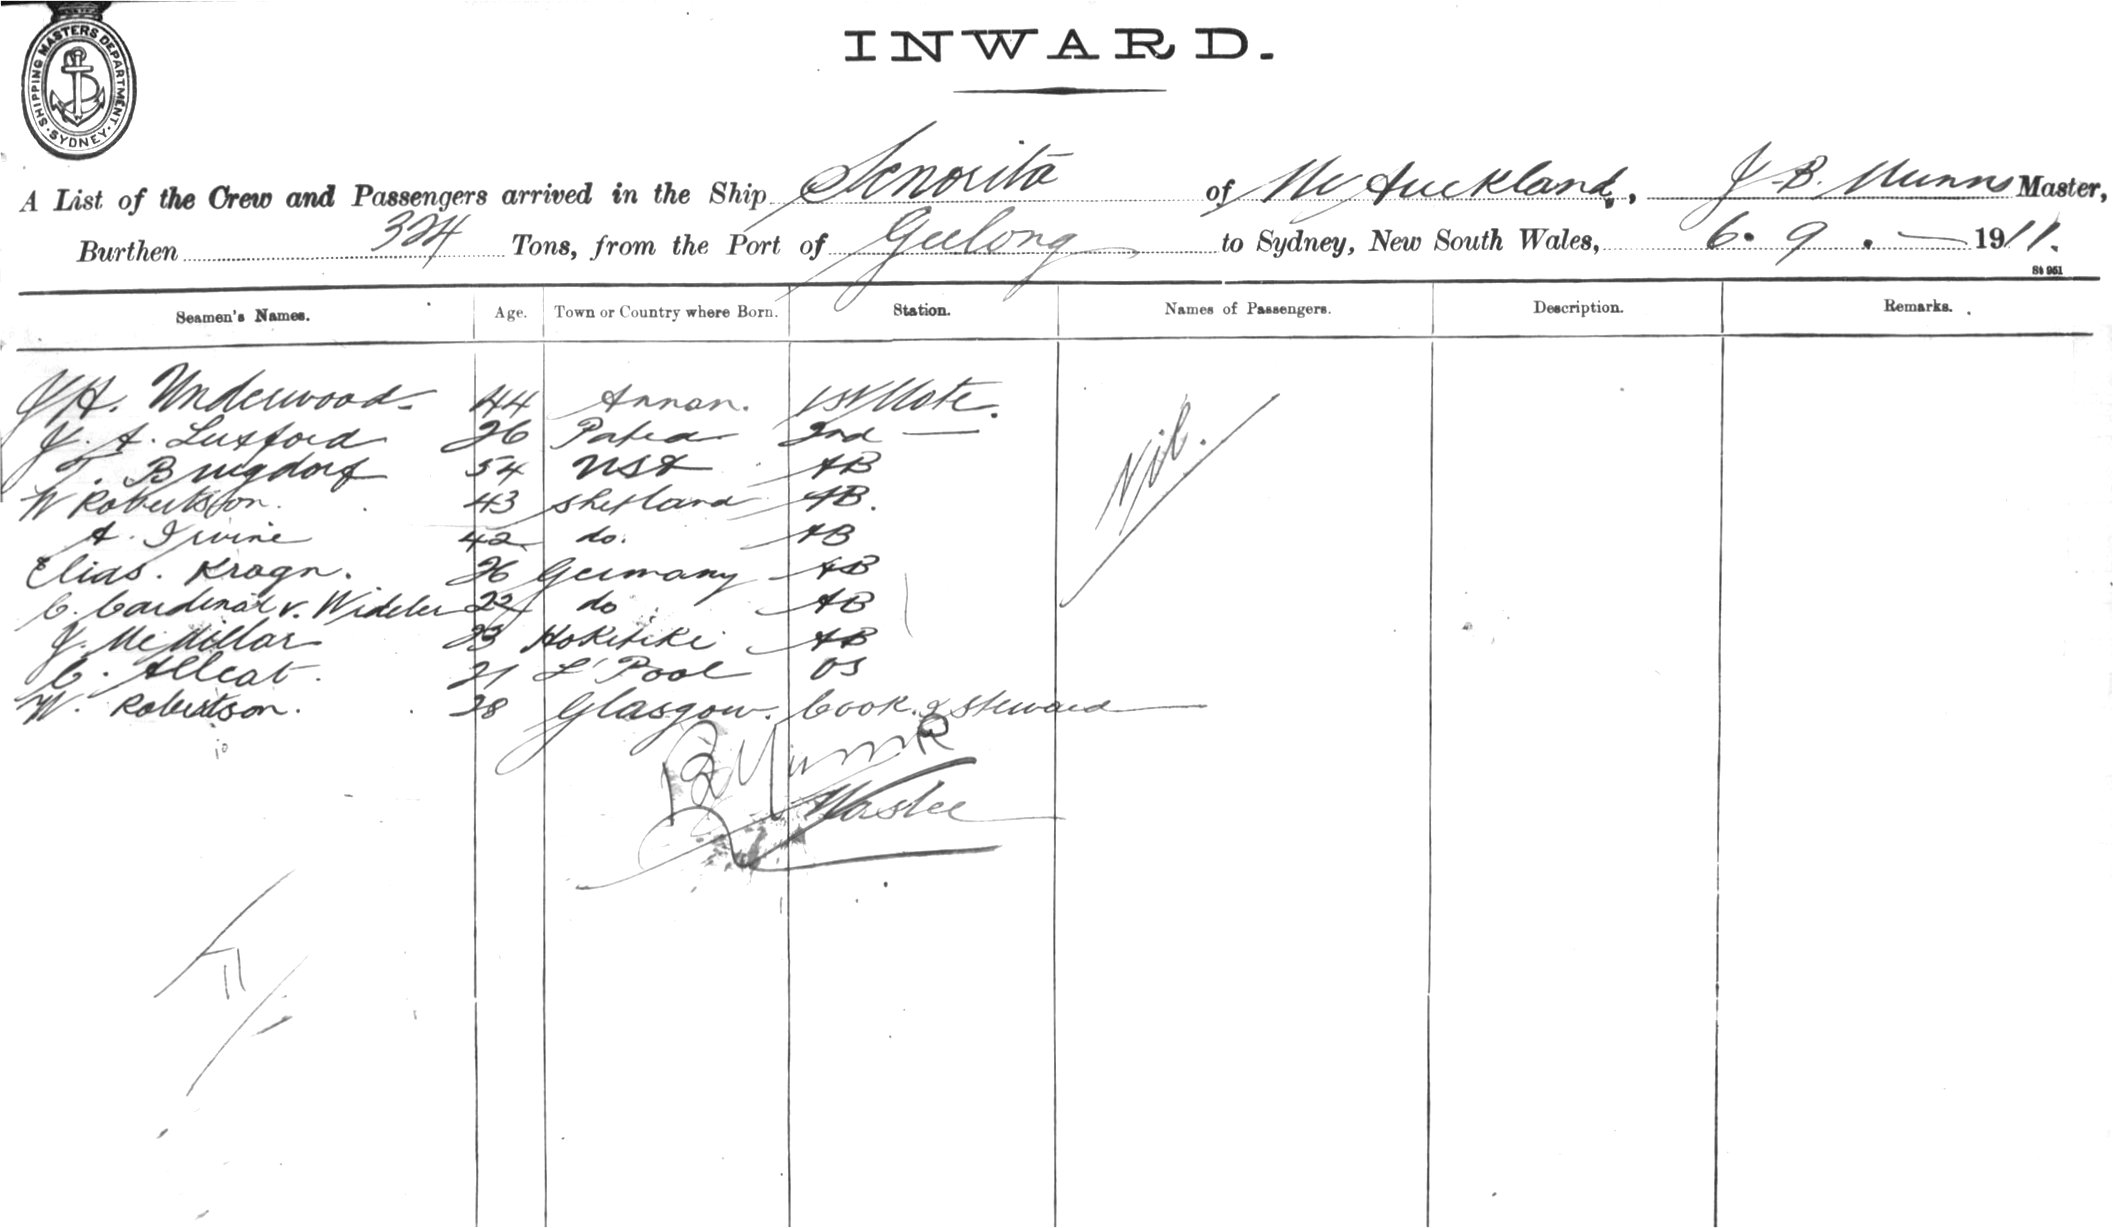 SHIPPING MASTERS DEPARTMENT. SYDNEY.
INWARD.
A List of the Crew and Passengers arrived in the Ship Senorita of Auckland, J. B. Munns Master,
Burthen 324 Tons, from the Port of Geelong to Sydney, New South Wales, 6. 9. 1911.
St 951
Seamen's Names. Age. Town or Country where Born. Station. Names of Passengers. Description. Remarks.
J H. Underwood 44 Annan. 1st Mate.
J. A. Luxford 26 Patea 2nd —
T. Brugdorf 54 USA AB
W Robertson. 43 Shetland AB.
A. Irvine 42 do. AB
Elias. Kragn. 26 Germany AB
C. Cardinal v. Wideler 22 do AB
J. McMillar 23 Hokitiki AB
C. Allcat. 21 L'Pool OS
W. Robertson. 28 Glasgow. Cook & Steward
Nil.
10
J B Munns
Master